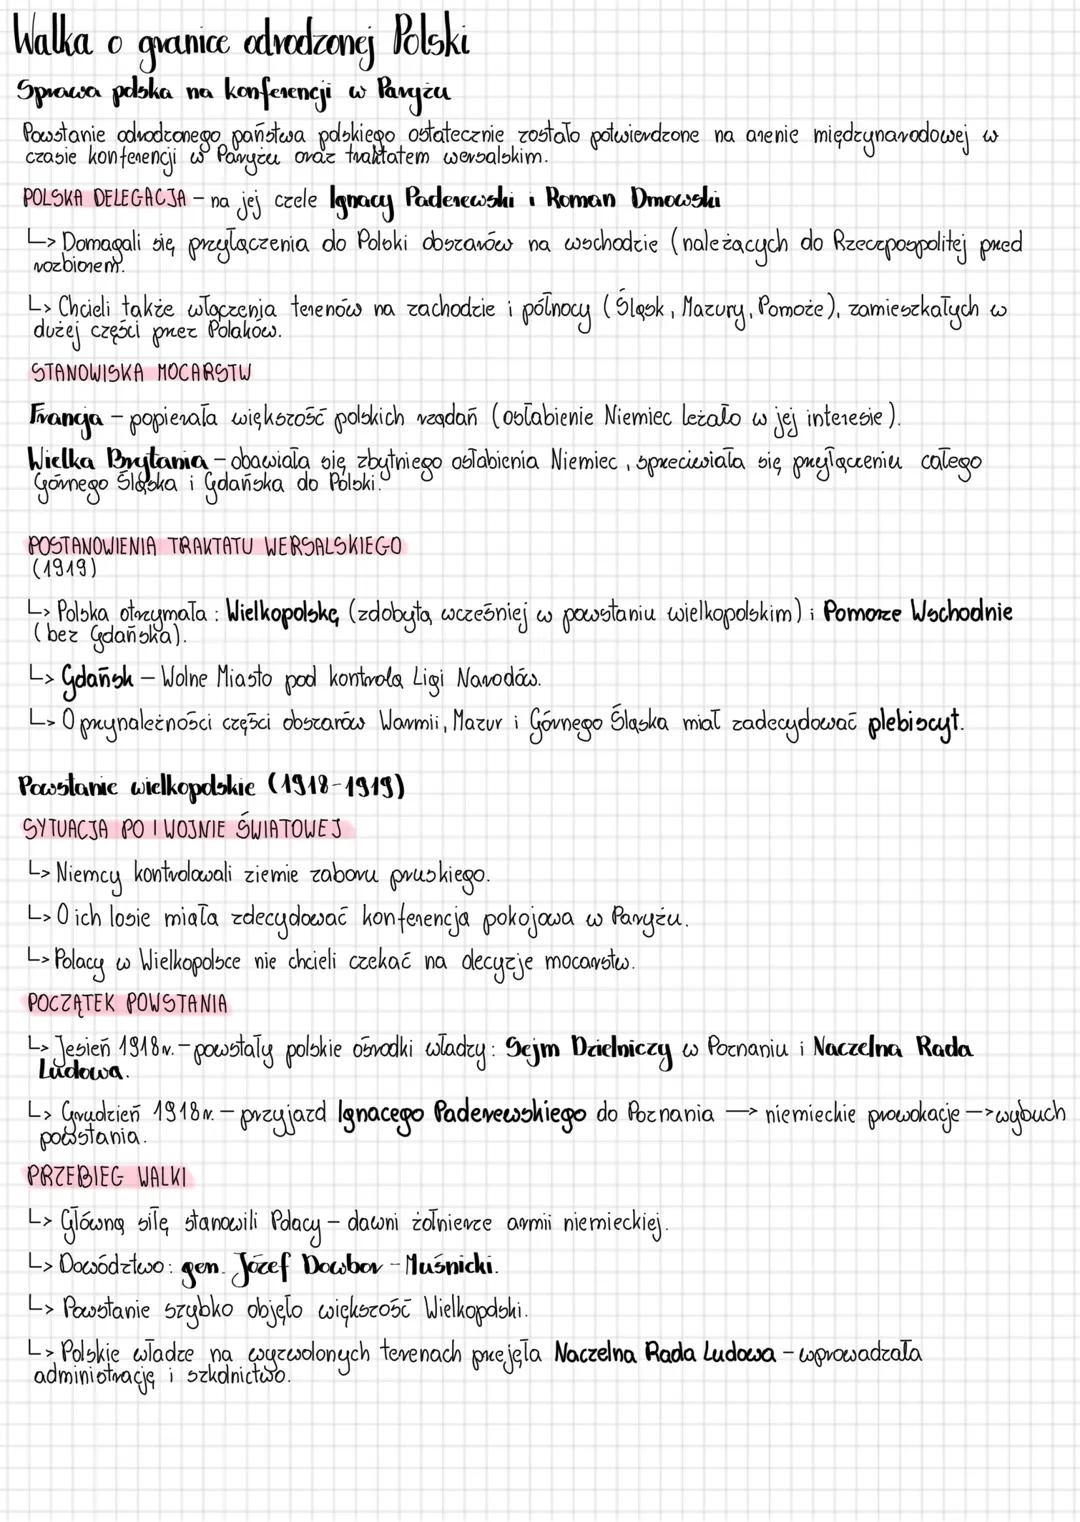 Walka o granice odrodzonej Polski
Sprawa polska na konferencji w Paryżu
Powstanie odrodzonego państwa polskiego ostatecznie zostało potwierdzone na arenie międzynarodowej w
czasie konferencji w Paryżu oraz traktatem wersalskim.
POLSKA DELEGACJA – na jej czele Ignacy Paderewski i Roman Dmowski
↳ Domagali się przyłączenia do Polski obszarów na wschodzie (należących do Rzeczpospolitej przed
rozbiorem.
↳ Chcieli także włączenia terenów na zachodzie i północy (Śląsk, Mazury, Pomoże), zamieszkałych w
dużej części przez Polaków.
STANOWISKA MOCARSTW
Francja – popierała większość polskich rządań (osłabienie Niemiec leżało w jej interesie).
Wielka Brytania – obawiała się zbytniego osłabienia Niemiec, sprzeciwiała się przyłączeniu całego
Górnego Śląska i Gdańska do Polski.
POSTANOWIENIA TRAKTATU WERSALSKIEGO
(1919)
↳ Polska otrzymała: Wielkopolskę (zdobytą wcześniej w powstaniu wielkopolskim) i Pomorze Wschodnie
(bez Gdańska).
↳ Gdańsk – Wolne Miasto pod kontrolą Ligi Narodów.
↳ O przynależności części obszarów Warmii, Mazur i Górnego Śląska miał zadecydować plebiscyt.
Powstanie wielkopolskie (1918-1919)
SYTUACJA PO I WOJNIE ŚWIATOWEJ
↳ Niemcy kontrolowali ziemie zaboru pruskiego.
↳ O ich losie miała zdecydować konferencja pokojowa w Paryżu.
↳ Polacy w Wielkopolsce nie chcieli czekać na decyzje mocarstw.
POCZĄTEK POWSTANIA
↳ Jesień 1918r. – powstały polskie ośrodki władzy: Sejm Dzielniczy w Poznaniu i Naczelna Rada
Ludowa.
↳ Grudzień 1918r. – przyjazd Ignacego Paderewskiego do Poznania → niemieckie prowokacje → wybuch
powstania.
PRZEBIEG WALKI
↳ Główną siłę stanowili Polacy – dawni żołnierze armii niemieckiej.
↳ Dowództwo: gen. Józef Dowbor-Muśnicki.
↳ Powstanie szybko objęło większość Wielkopolski.
↳ Polskie władze na wyzwolonych terenach przejęła Naczelna Rada Ludowa – wprowadzała
administrację i szkolnictwo.